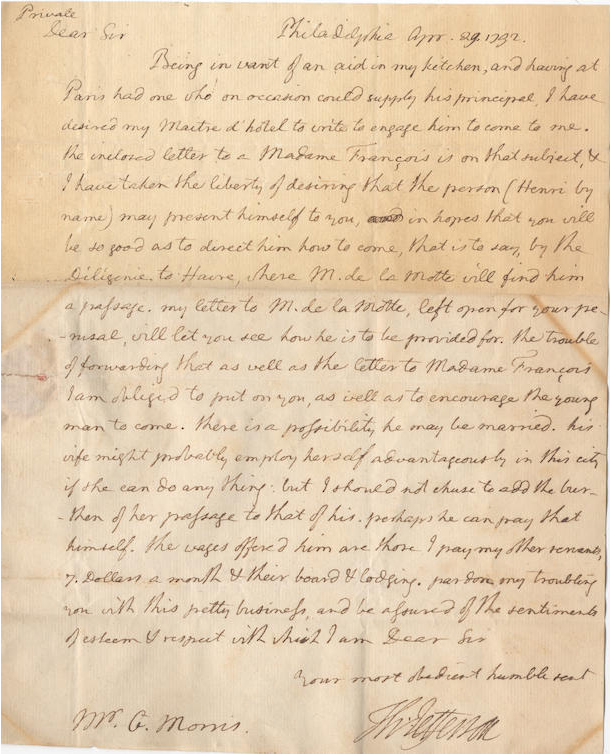 Private
Dear Sir Philadelphia Apr. 29. 1792.
Being in want of an aid in my kitchen, and having at
Paris had one who on occasion could supply his principal, I have
desired my Maitre d'hotel to write to engage him to come to me.
the inclosed letter to a Madame François is on that subject, &
I have taken the liberty of desiring that the person (Henri by
name) may present himself to you, in hopes that you will
be so good as to direct him how to come, that is to say, by the
Diligence to Havre, where M. de la Motte will find him
a passage. my letter to M. de la Motte, left open for your pe-
-rusal, will let you see how he is to be provided for. the trouble
of forwarding that as well as the letter to Madame François
I am obliged to put on you, as well as to encourage the young
man to come. there is a possibility he may be married. his
wife might probably employ herself advantageously in this city
if she can do any thing: but I should not chuse to add the bur-
-then of her passage to that of his. perhaps he can pay that
himself. the wages offered him are those I pay my other servants,
7. Dollars a month & their board & lodging. pardon my troubling
you with this petty business, and be assured of the sentiments
of esteem & respect with which I am Dear Sir
Your most obedient humble servt
Th: Jefferson
Mr. G. Morris.